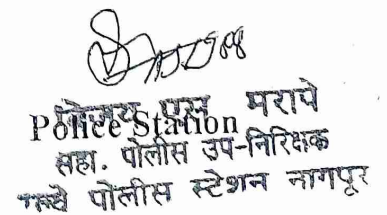 विजय एस मरापे
Police Station
सहा. पोलीस उप-निरिक्षक
पोलीस स्टेशन नागपूर